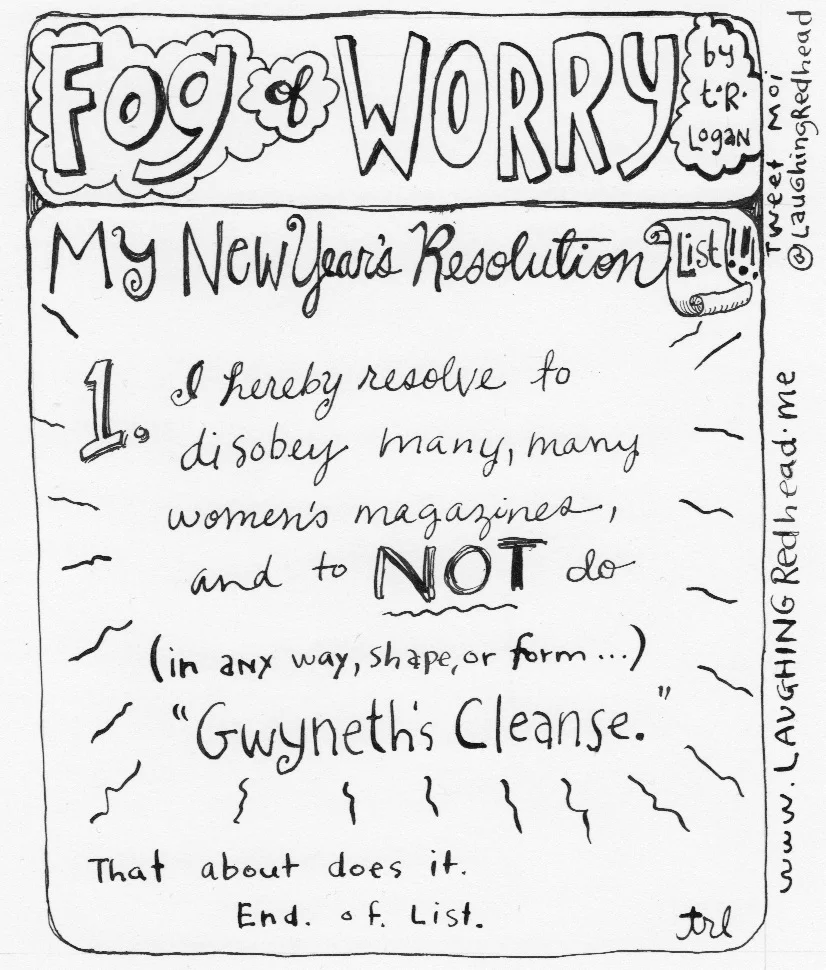 Fog of WORRY
by
t.R.
Logan
Tweet Moi
@LaughingRedhead
My New Year's Resolution List!!!
1. I hereby resolve to
disobey many, many
women's magazines,
and to NOT do
(in any way, shape, or form...)
"Gwyneth's Cleanse."
That about does it.
End. of. List.
trl
www.LAUGHINGRedhead.me